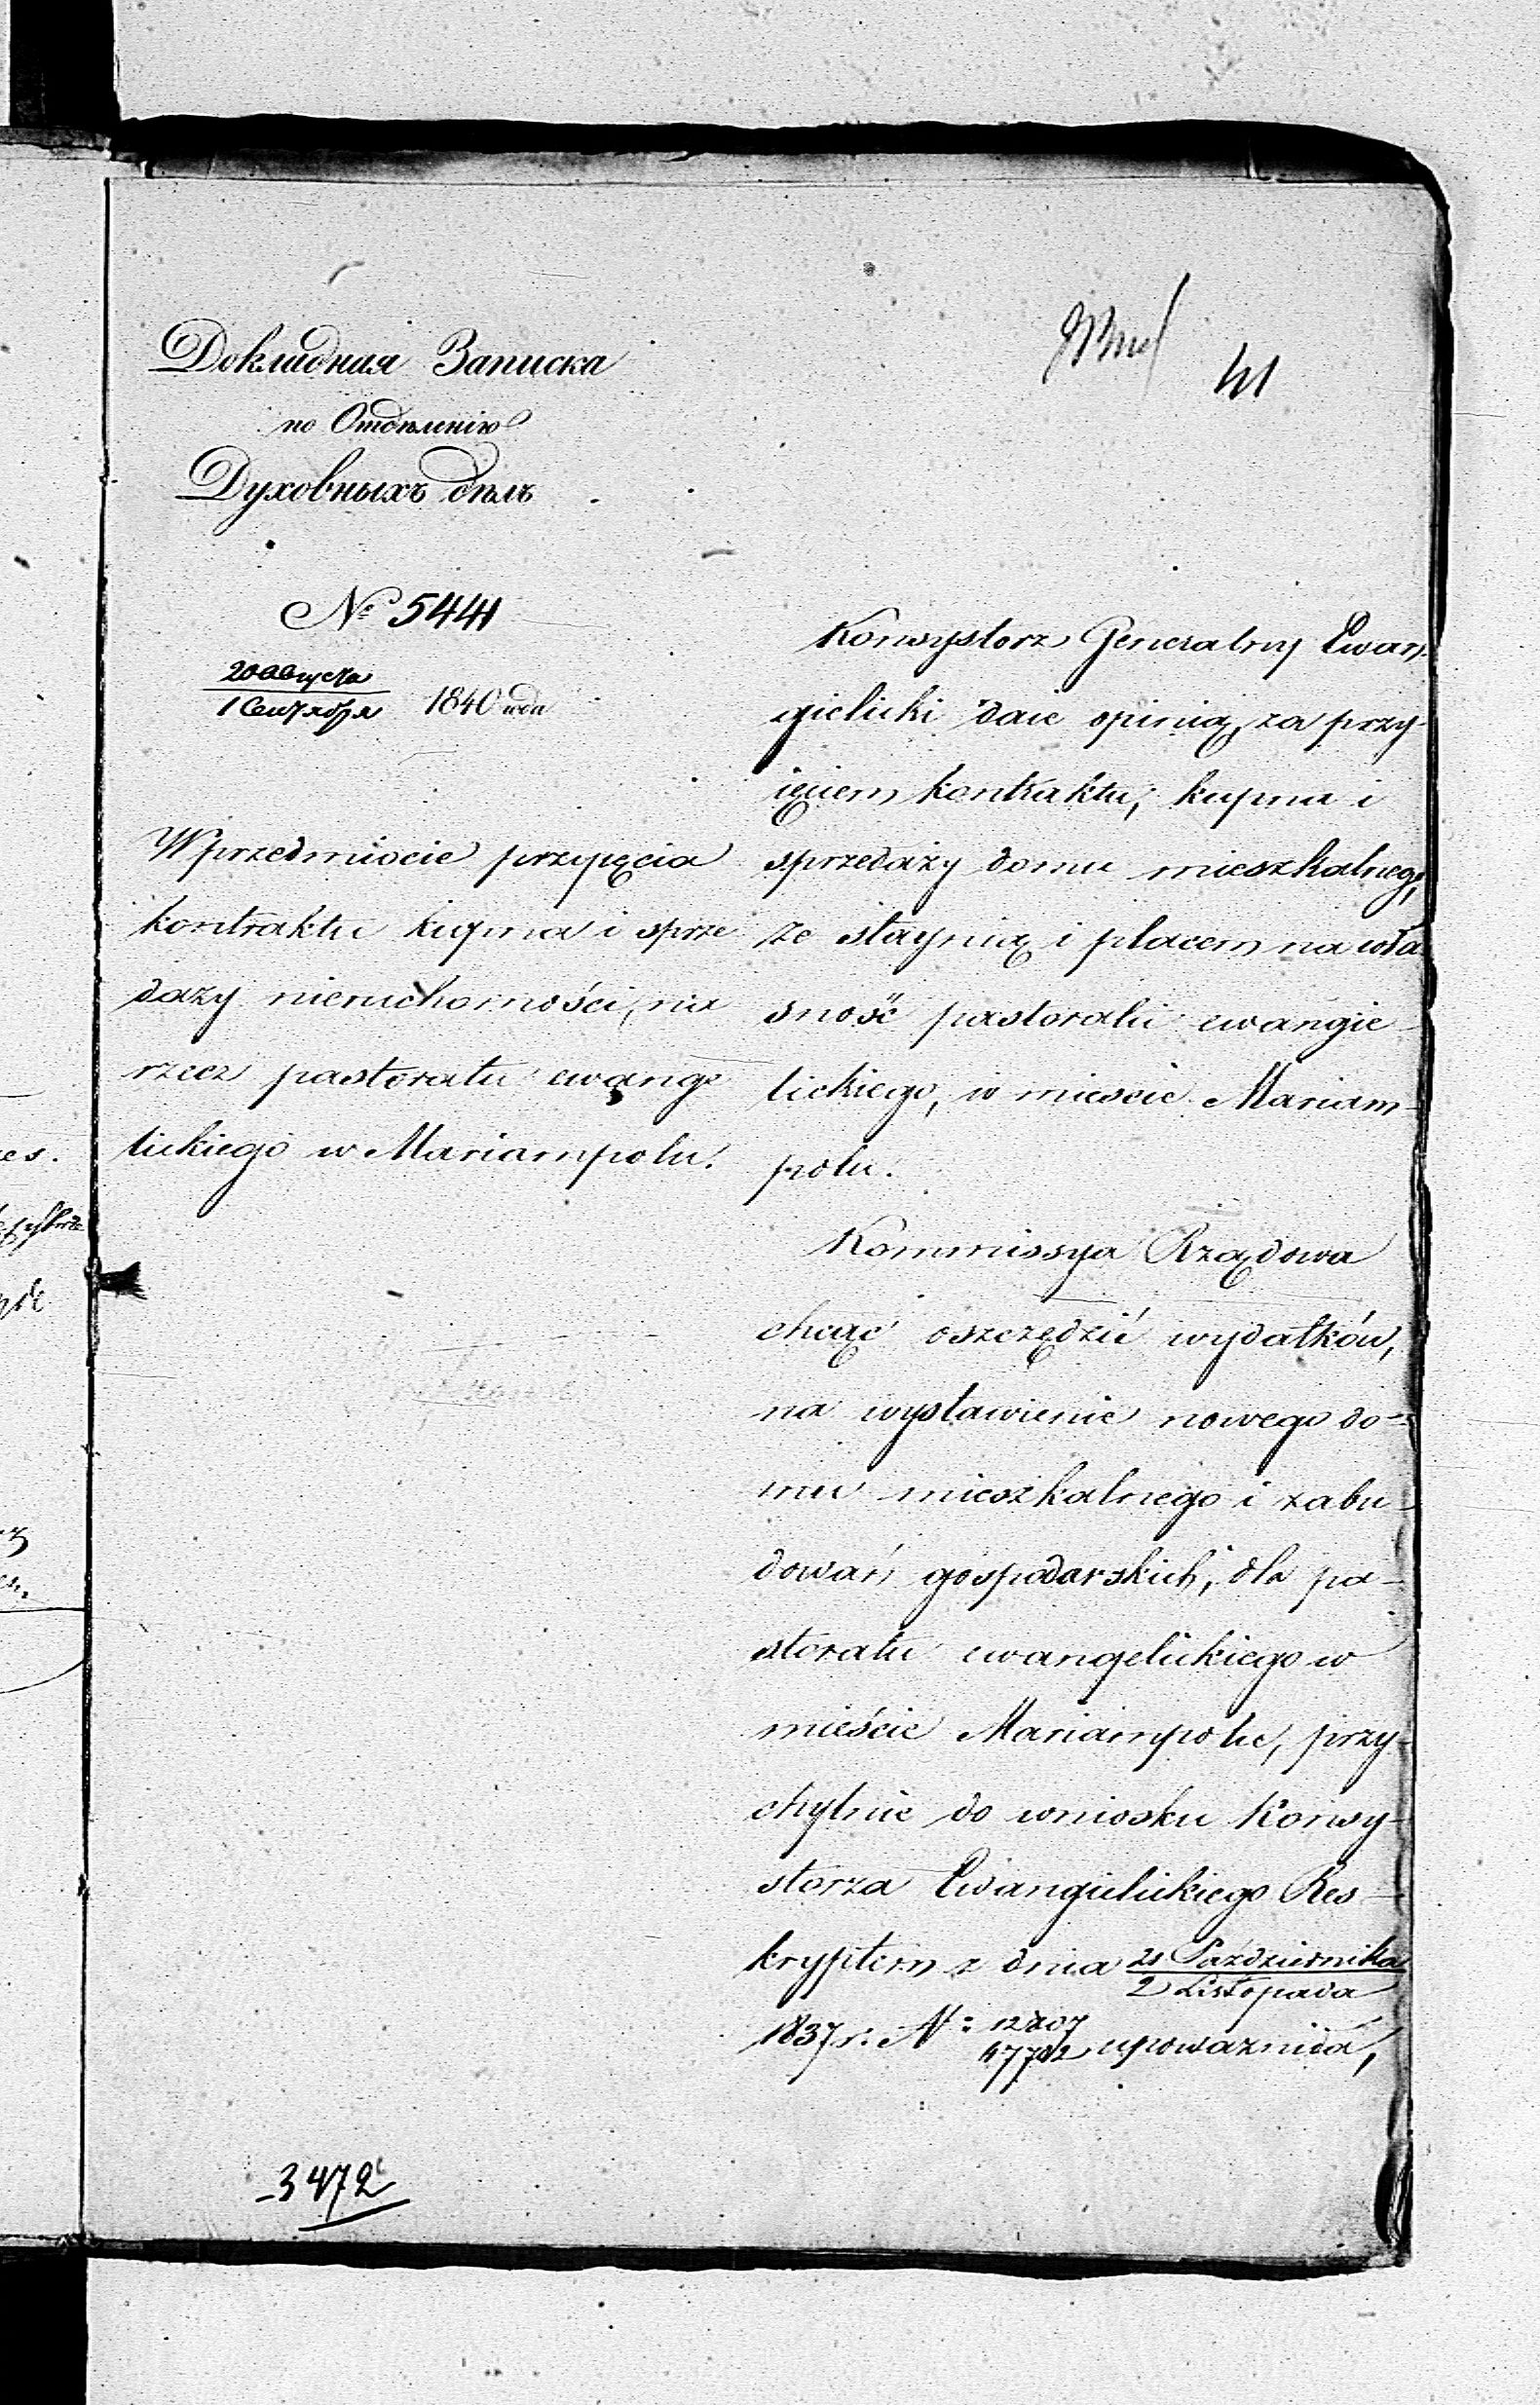 41
Докладная Записка
по Отдѣленію
Духовныхъ дѣлъ
№ 5441
20 Августа
1 Сентября 1840 года
W przedmiocie przyięcia
kontraktu kupna i sprze
daży nieruchomości, na
rzecz pastoratu ewange
lickiego w Mariampolu.
Konsystorz Generalny Ewan
gielicki daie opinią, za przy-
ięciem kontraktu, kupna i
sprzedaży domu mieszkalnego,
ze staynią i placem na wła
sność pastoratu ewangie-
lickiego, w mieście Mariam-
polu.
Kommissya Rządowa
chcąc oszczędzić wydatków,
na wystawienie nowego do-
mu mieszkalnego i zabu-
dowań gospodarskich, dla pa-
storatu ewangelickiego w
mieście Mariampolu, przy-
chylnie do wniosku Konsy-
storza Ewangielickiego Res-
kryptem z dnia 21 Października
2 Listopada
1837 r. N: upoważniła,
3472